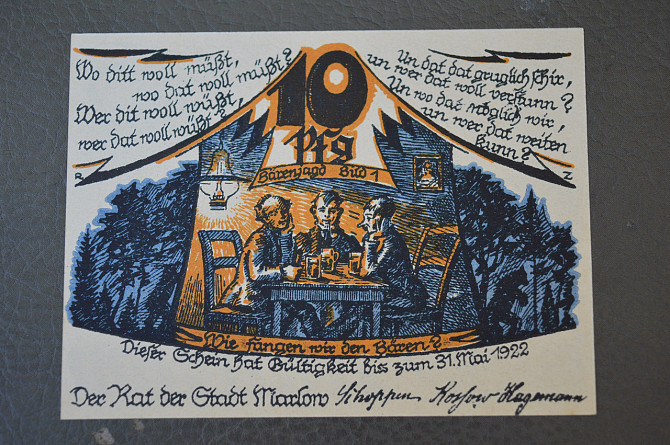 Wo ditt woll müßt,
wo dat woll müßt?
Wer dit woll wüßt,
wer dat woll wüßt?
10
Pfg
Un dat dat gruglich Thir,
un wer dat woll verstunn?
Un wo dat möglich wir,
un wer dat weiten
kunn?
R
Z
Bärenjagd Bild 1
Wie fangen wir den Bären?
Dieser Schein hat Gültigkeit bis zum 31. Mai 1922
Der Rat der Stadt Marlow Schoppen Kossow Hagemann